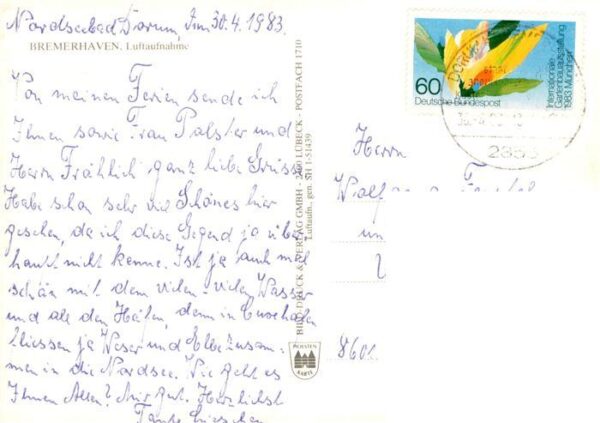 Nordseebad Dorum, den 30.4.1983.
BREMERHAVEN, Luftaufnahme
Von meinen Ferien sende ich
Ihnen sowie Frau Palster und
Herrn Fröhlich ganz liebe Grüsse
Habe schon sehr viel Schönes hier
gesehen, da ich diese Gegend ja über
haupt nicht kenne. Ist ja auch mal
schön mit dem vielen - vielen Wasser
und all den Häfen, denn in Cuxhafen
fliessen ja Weser und Elbe zusam.
men in die Nordsee. Wie geht es
Ihnen Allen? Mir gut. Herzlichst
Tante
BILD-DRUCK & VERLAG GMBH - 2400 LÜBECK - POSTFACH 1710
Luftaufn., gen. SH 1-51439
KARTE
60
Deutsche Bundespost
Internationale
Gartenbauausstellung
1983 München
Herrn
8601